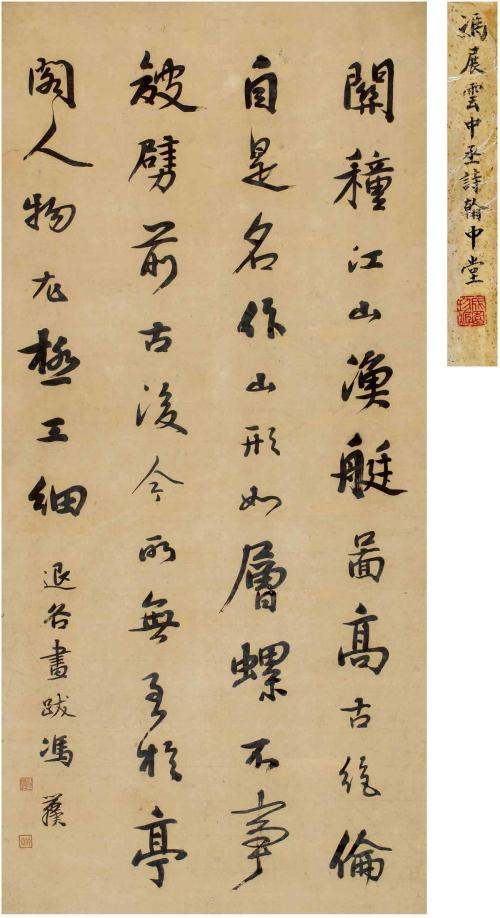 關穜江山漁艇啚高古絕倫
自是名作山形如層螺不事
皴劈前古後今所無至於亭
閣人物尤極工細
退谷畫跋馮
馮展雲中丞詩翰中堂